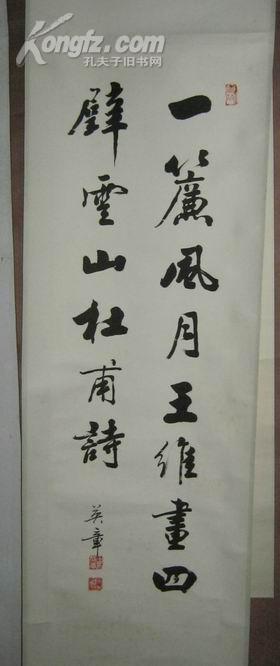 Kongfz.com
孔夫子旧书网
一簾風月王維畫四
壁雲山杜甫詩
英章